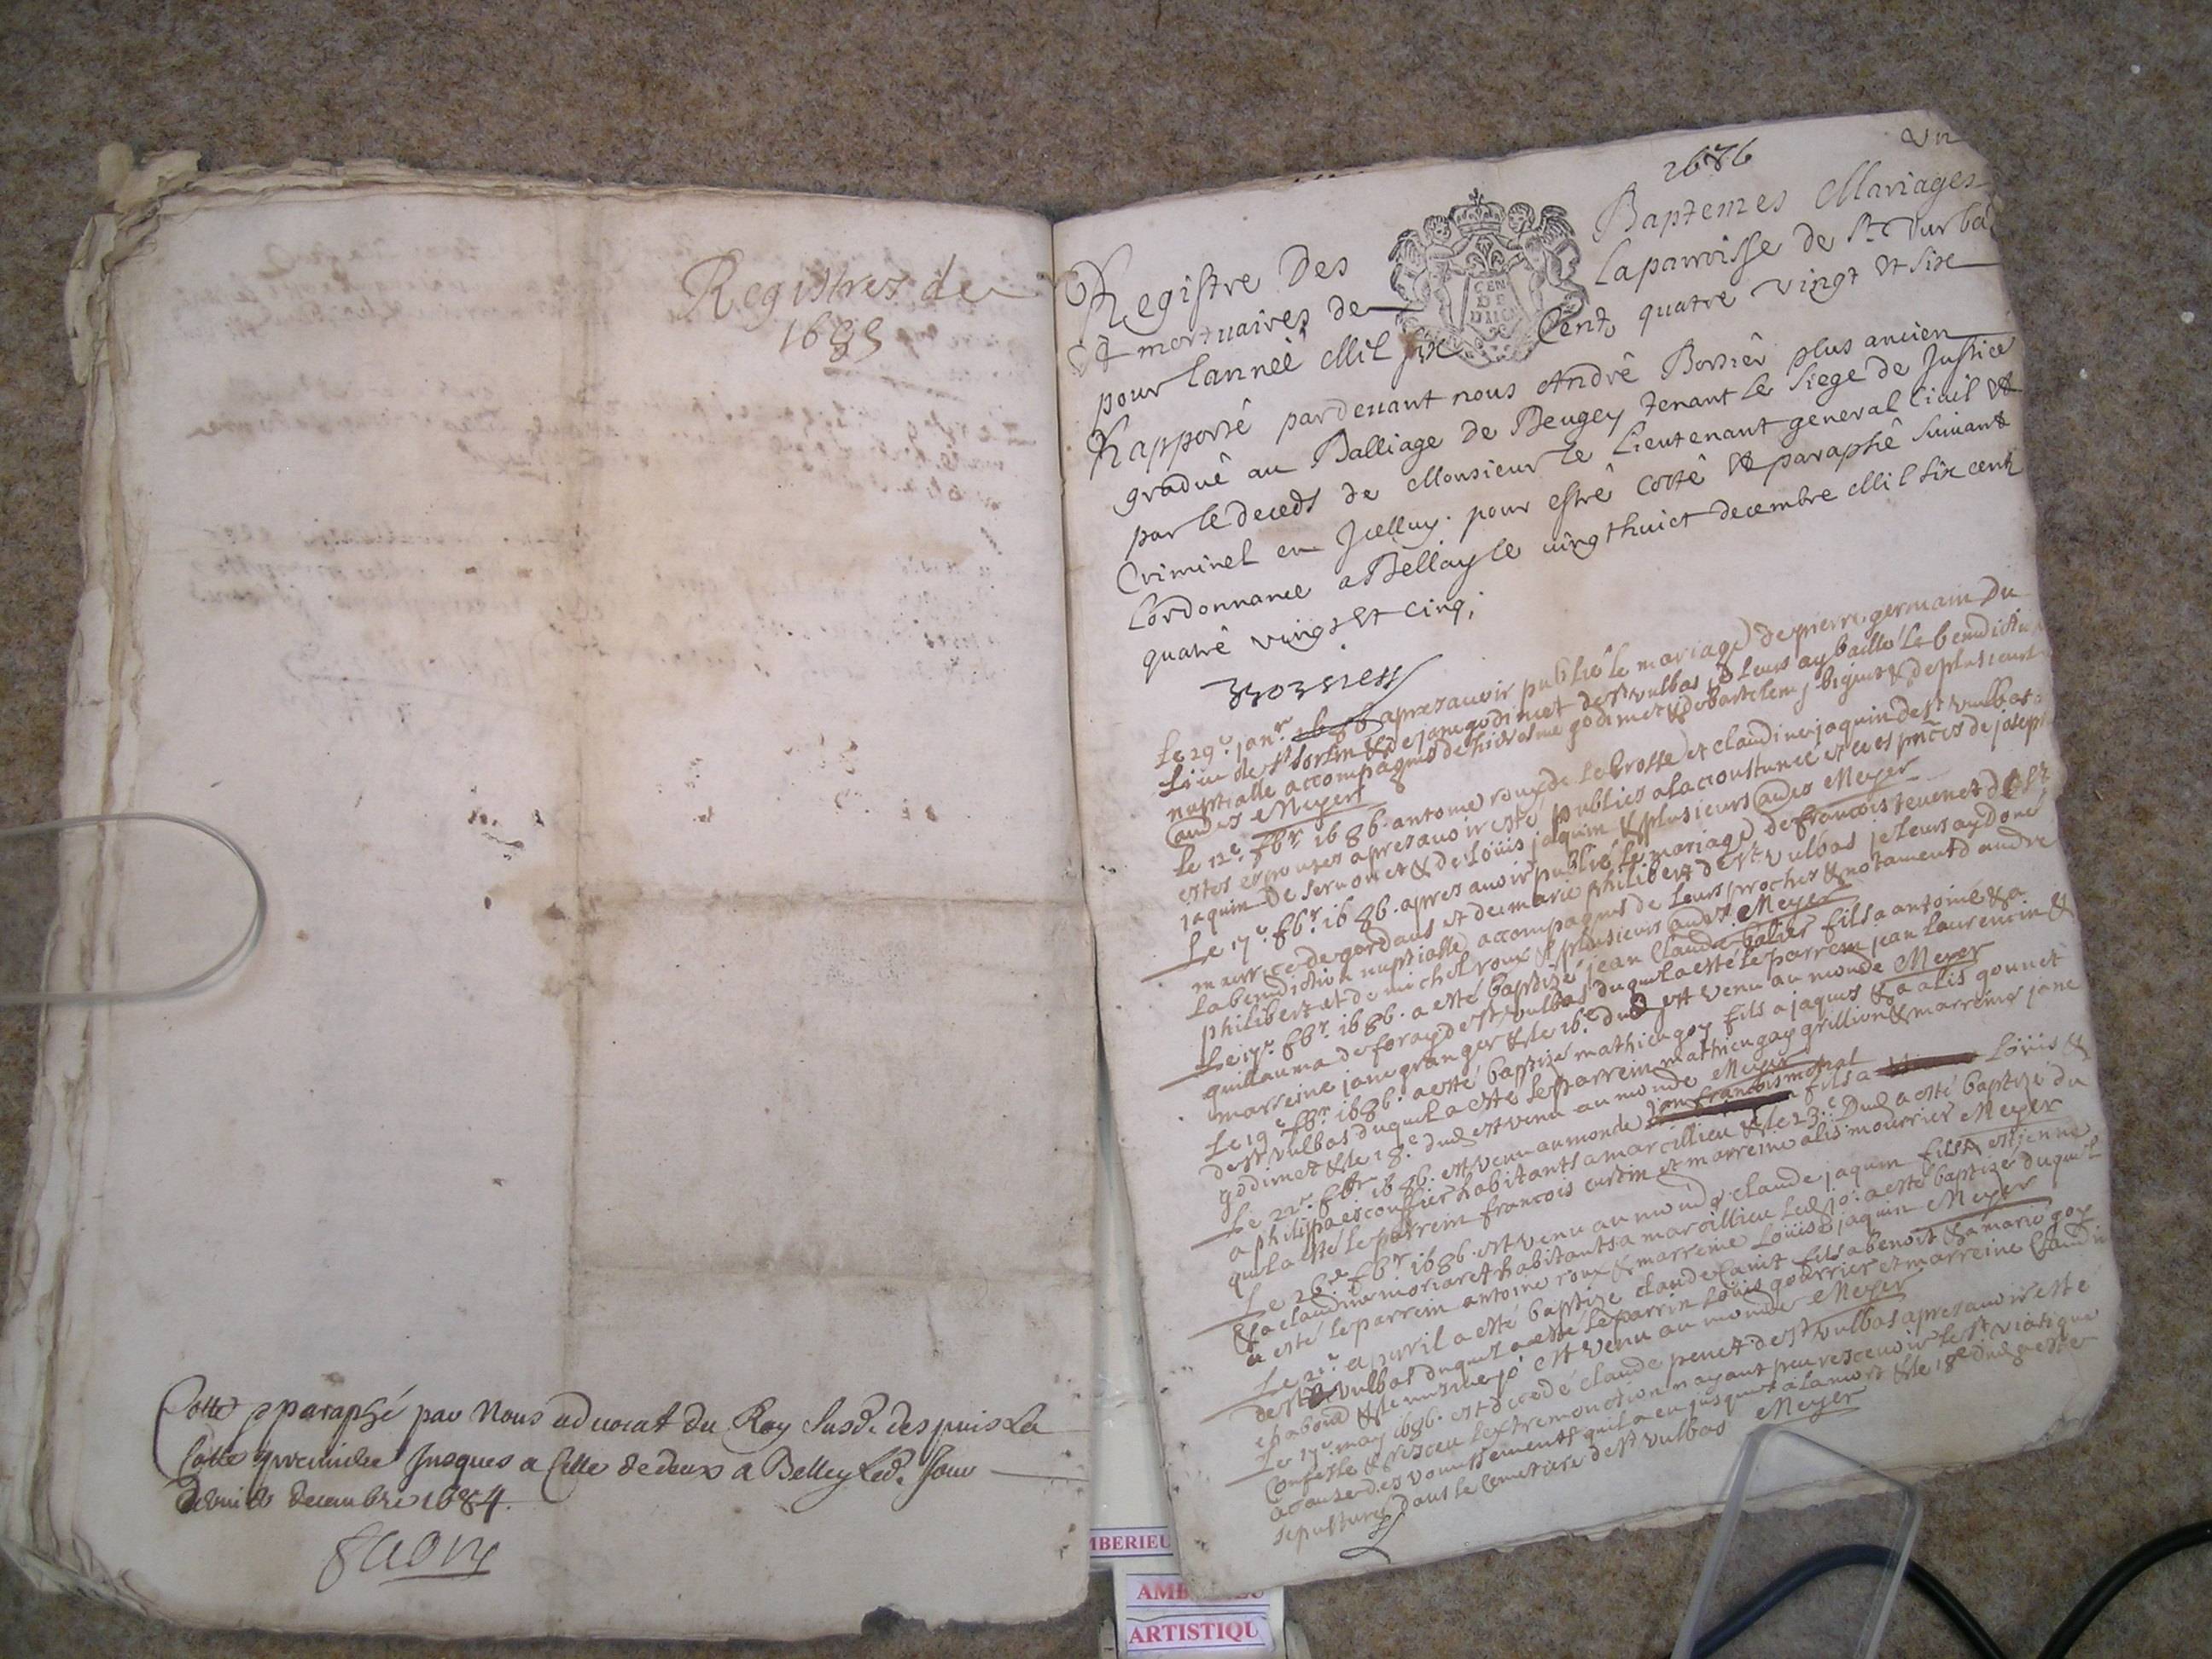 Registres de
1685
Cotté & paraphé par Nous advocat du Roy susd. despuis La
Cotte premiere Jusques a Celle de deux a Belley led. Jour
decembre 1684.
1686
un
Registre Des Baptemes Mariages
Et mortuaires de La parroisse de St. Vurba
pour L'année Mil six Cent quatre vingt et six
Rapporté pardevant nous André Borsier plus ancien
gradué au Balliage de Beugey tenant le siege de Justice
par le deceds de Monsieur le Lieutenant general Civil et
Criminel en Jcelluy. pour estre cotté et paraphé suivant
L'ordonnance a Bellay le vingt huict decembre Mil six cent
quatre vingt et cinq;
Borsier
Le 29e. janr. 1686 apres avoir publié le mariage de pierre germain Du
lieu de st sorlin & de jane godimet de st vulbas je leurs ay baillé la benediction
nuptialle accompagnés de hierosme godimet & de bartelemy & de plusieurs
autres Meyer
Le 12e. fbr. 1686. antoine roux de la brosse et claudine jaquin de st vulbas
estes espouses apres avoir esté publies a la coustumee et ce es pnces de joseph
jaquin de servonet & de Loüis jaquin & plusieurs autres Meyer
Le 17e. fbr. 1686. apres avoir publié le mariage de francois tevenet de st
maurice de gordans et de marie philibert de st vulbas je leurs ay doné
la benediction nuptialle accompagnes de leurs proches & notament d andre
philibert et de michel roux & plusieurs autrs. Meyer
Le 17e. fbr. 1686. a esté baptizé jean Claude fils a antoine & a
guillauma de foray de st vulbas duquel a esté le parrein jean laurencin &
marreine jane granger & le 16e. dud est venu au monde Meyer
Le 19e fbr. 1686. a esté baptizé mathieu goy fils a jaques & a alis gonnet
de st vulbas duquel a esté le parrein mathieu gay grillion & marreine jane
godimet & le 18e. dud est venu au monde Meyer
Le 22e. fbr 1686. est venu au monde jean francois fils a Loüis &
a philippa escoffier habitants a marcillieu & le 23e. Dud a esté baptizé du
quel a esté le parrein francois curtin et marreine alis mourrier Meyer
Le 26e. fbr. 1686. est venu au monde claude jaquin fils a estienne
& a claudine moriaret habitants a marcillieu le a esté baptizé duquel
a esté le parrein antoine roux & marreine Loüise jaquin Meyer
Le apvril a esté baptize claude fils a benoit & a marie goy
de st vulbas duquel a esté le parrin Loüis gourrier et marreine Claudi
chabond & le est venu au monde Meyer
Le 17e. may 1686. est decedé claude penet de st vulbas apres avoir esté
Confessé & resceu lextremonction n ayant peu rescevoir le st viatique
a cause des vomissements quil a eu jusques a la mort & le 18e dud a esté
sepulturé dans le cemetiere de st vulbas Meyer
MBERIEU
ARTISTIQU